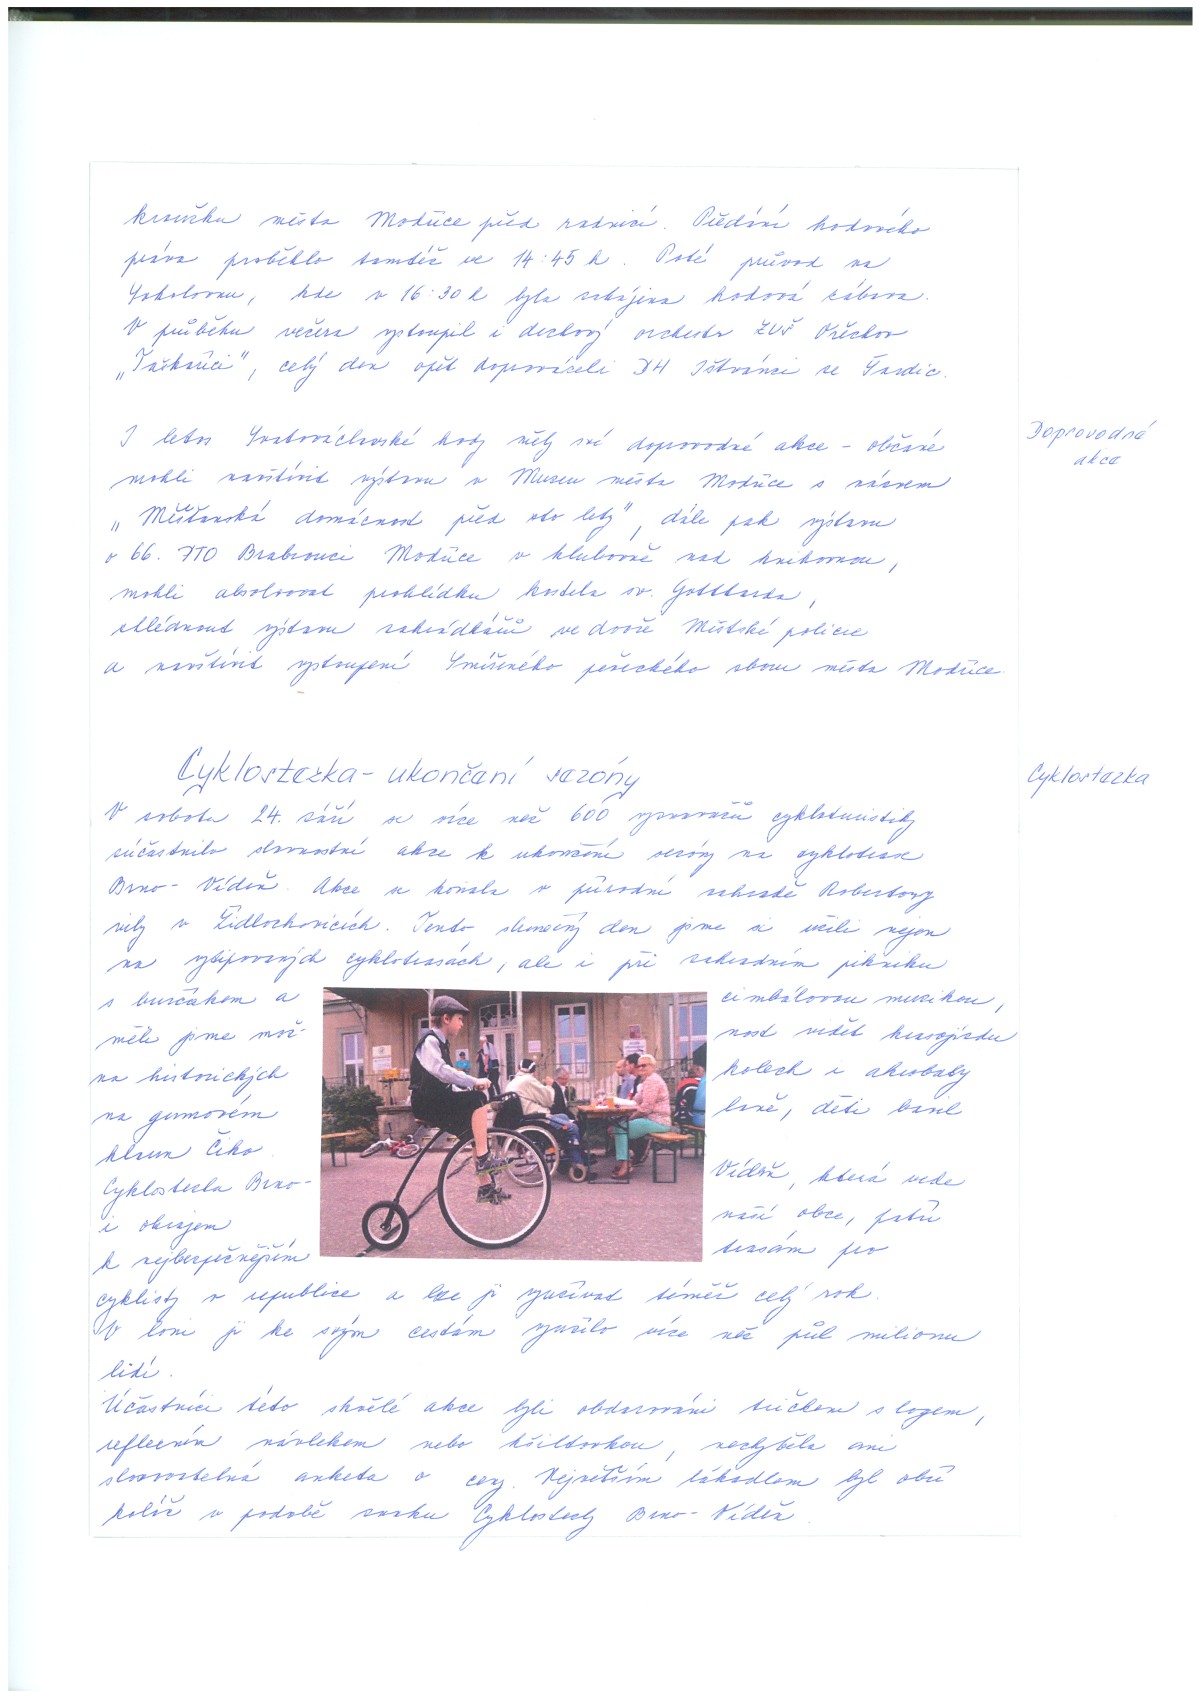 kroužku města Modřice před radnicí. Předání hodového
práva proběhlo tamtéž ve 14:45 h. Poté průvod na
Sokolovnu, kde v 16:30 h byla zahájena hodová zábava.
V průběhu večera vystoupil i dechový orchestr ZUŠ Ořechov
„Taškařici", celý den opět doprovázeli DH Ištvánci ze Tvrdic.
I letos Svatováclavské hody měly své doprovodné akce - občané
mohli navštívit výstavu v Muzeu města Modřice s názvem
„Měšťanská domácnost před sto lety", dále pak výstavu
o 66. PTO Brabrouci Modřice v klubovně nad knihovnou,
mohli absolvovat prohlídku kostela sv. Gottharda,
shlédnout výstavu zahrádkářů ve dvoře Městské policie
a navštívit vystoupení Smíšeného pěveckého sboru města Modřice.
Doprovodné
akce
Cyklostezka - ukončení sezóny
Cyklostezka
V sobotu 24. září se více než 600 vyznavačů cykloturistiky
zúčastnilo slavnostní akce k ukončení sezóny na cyklotrase
Brno - Vídeň. Akce se konala v přírodní zahradě Robertovy
vily v Židlochovicích. Tento slunečný den jsme si užili nejen
na vytipovaných cyklotrasách, ale i při zahradním pikniku
s burčákem a cimbálovou muzikou,
měli jsme mož- nost vidět krasojízdu
na historických kolech i akrobaty
na gumovém laně, děti bavil
klaun Čiko.
Cyklostezka Brno- Vídeň, která vede
i okrajem naší obce, patří
k nejbezpečnějším trasám pro
cyklisty v republice a lze ji využívat téměř celý rok.
V loni ji ke svým cestám využilo více než půl milionu
lidí.
Účastníci této skvělé akce byli obdarováni tričkem s logem,
reflexním návlekem nebo kšiltovkou, nechyběla ani
slosovatelná anketa o ceny. Největším lákadlem byl obří
koláč v podobě znaku Cyklostezky Brno - Vídeň.